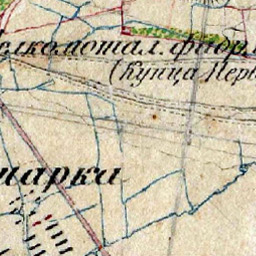 елкомотал. фабр
(Купца Пер
чарка